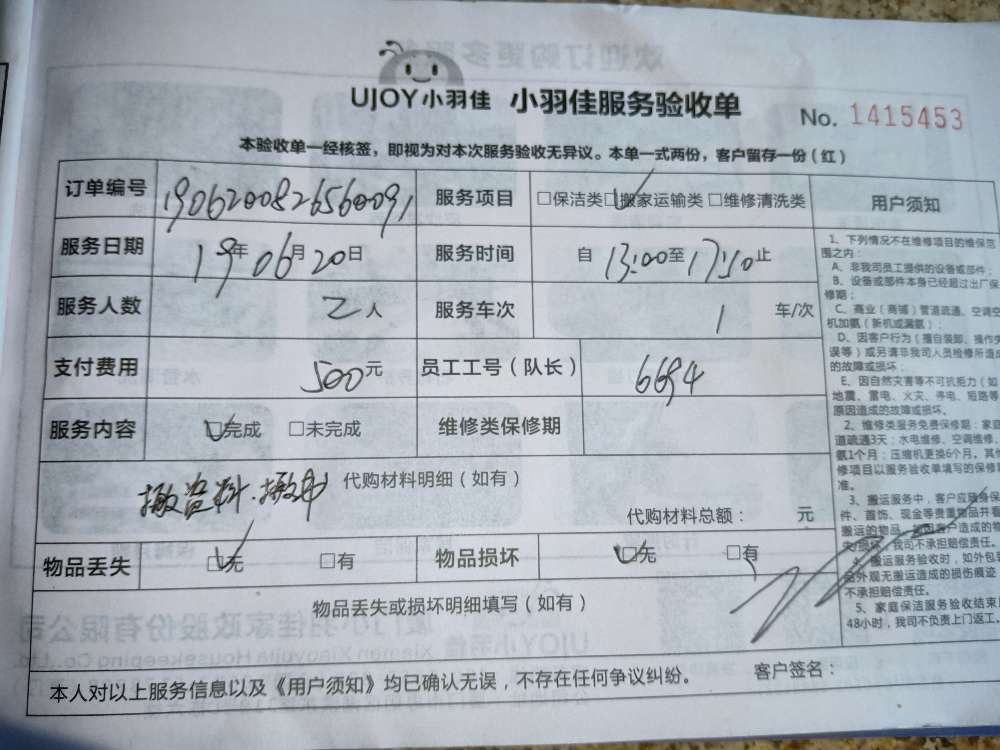 UJOY小羽佳 小羽佳服务验收单
No. 1415453
本验收单一经核签，即视为对本次服务验收无异议。本单一式两份，客户留存一份（红）
订单编号 1906200826560091 服务项目 □保洁类 ☑搬家运输类 □维修清洗类
服务日期 19年06月20日 服务时间 自 13:00至17:10止
服务人数 2人 服务车次 1 车/次
支付费用 500元 员工工号（队长） 6694
服务内容 ☑完成 □未完成 维修类保修期
搬资料. 代购材料明细（如有）
代购材料总额： 元
物品丢失 ☑无 □有 物品损坏 ☑无 □有
物品丢失或损坏明细填写（如有）
客户签名：
本人对以上服务信息以及《用户须知》均已确认无误，不存在任何争议纠纷。
用户须知
1、下列情况不在维修项目的维保范
围之内：
A、非我司员工提供的设备或部件；
B、设备或部件本身已经超过出厂保
修期；
C、商业（商铺）管道疏通、空调空
机加氨（新机或漏氨）；
D、因客户行为（擅自装卸、操作失
误等）或另请非我司人员检修所造成
的故障或损坏；
E、因自然灾害等不可抗拒力（如
地震、雷电、火灾、停电、短路等
原因造成的故障或损坏。
2、维修类服务免费保修期：家庭
道疏通3天；水电维修、空调维修、
氨1个月；压缩机更换6个月。其他
修项目以服务验收单填写的保修期
准。
3、搬运服务中，客户应随身保
件、首饰、现金等贵重物品并看
搬运的物品，如因客户造成的物
失/损坏，我司不承担赔偿责任。
4、搬运服务验收时，如外包装
品外观无搬运造成的损伤痕迹
不承担赔偿责任。
5、家庭保洁服务验收结束
48小时，我司不负责上门返工。